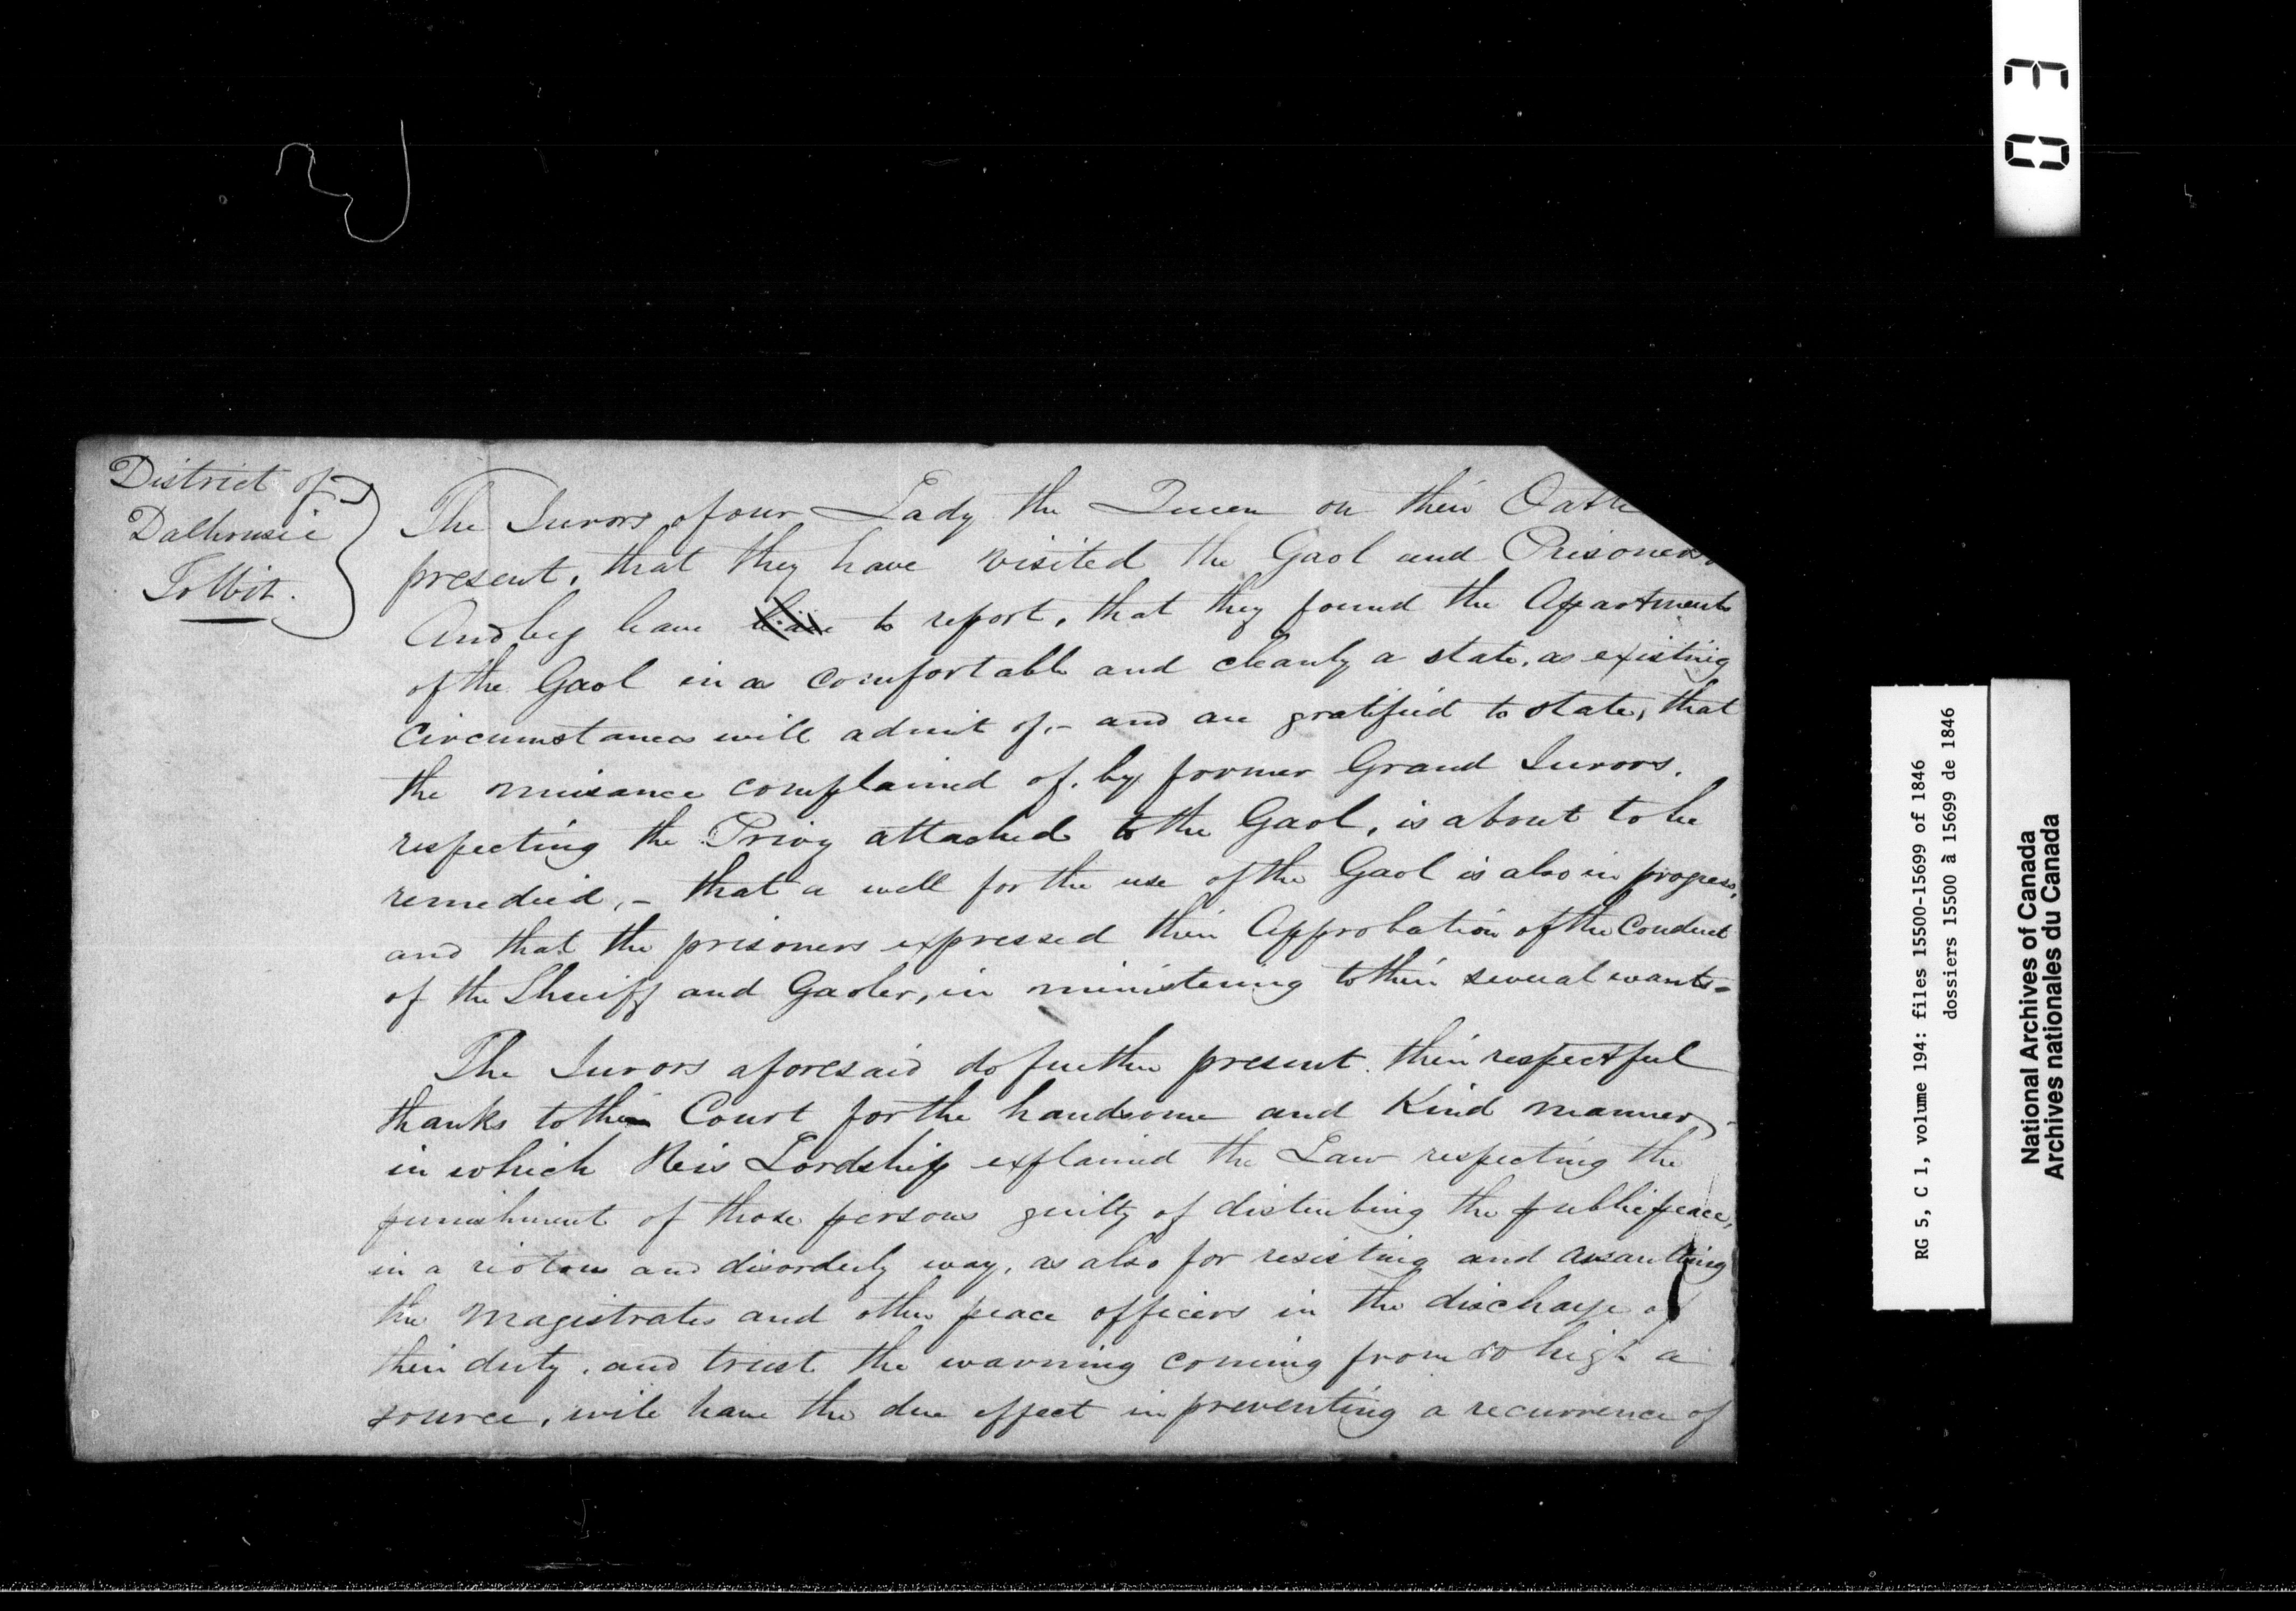 District of
Dalhousie
To Wit.
The Jurors of our Lady the Queen on their Oath
present, that they have visited the Gaol and Prisoners,
And beg leave to report, that they found the Apartments
of the Gaol in as comfortable and cleanly a state, as existing
Circumstances will admit of,- and are gratified to state, that
the nuisance complained of, by former Grand Jurors,
respecting the Privy attached to the Gaol, is about to be
remedied,- that a well for the use of the Gaol is also in progress,
and that the prisoners expressed their Approbation of the Conduct
of the Sheriff and Gaoler, in ministering to their several wants-
The Jurors aforesaid do further present their respectful
thanks to the Court for the handsome and Kind manner,
in which His Lordship explained the Law respecting the
punishment of those persons guilty of disturbing the public peace,
in a riotous and disorderly way, as also for resisting and assaulting
the Magistrates and other peace officers in the discharge of
their duty, and trust the warning coming from so high a
source, will have the due effect in preventing a recurrence of
03
RG 5, C 1, volume 194: files 15500-15699 of 1846
dossiers 15500 à 15699 de 1846
National Archives of Canada
Archives nationales du Canada